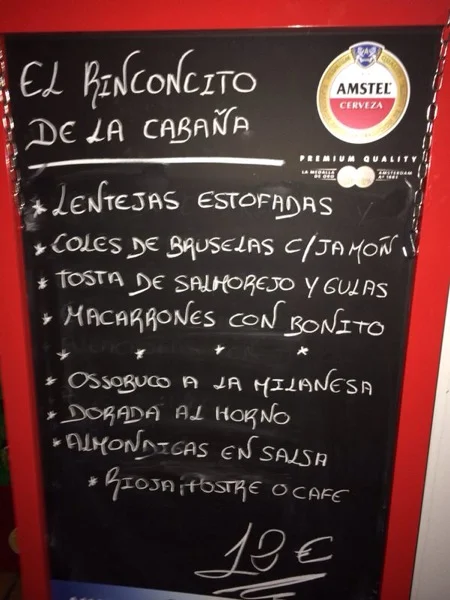 EL RINCONCITO
DE LA CABAÑA
AMSTEL
CERVEZA
PREMIUM QUALITY
LA MEDALLA DE ORO
AMSTERDAM Aº 1883
* LENTEJAS ESTOFADAS
* COLES DE BRUSELAS C/JAMOÑ
* TOSTA DE SALMOREJO Y GULAS
* MACARRONES CON BONITO
* * * *
* OSSOBUCO A LA MILANESA
* DORADA AL HORNO
* ALMONDIGAS EN SALSA
* RIOJA, POSTRE O CAFE
12 €